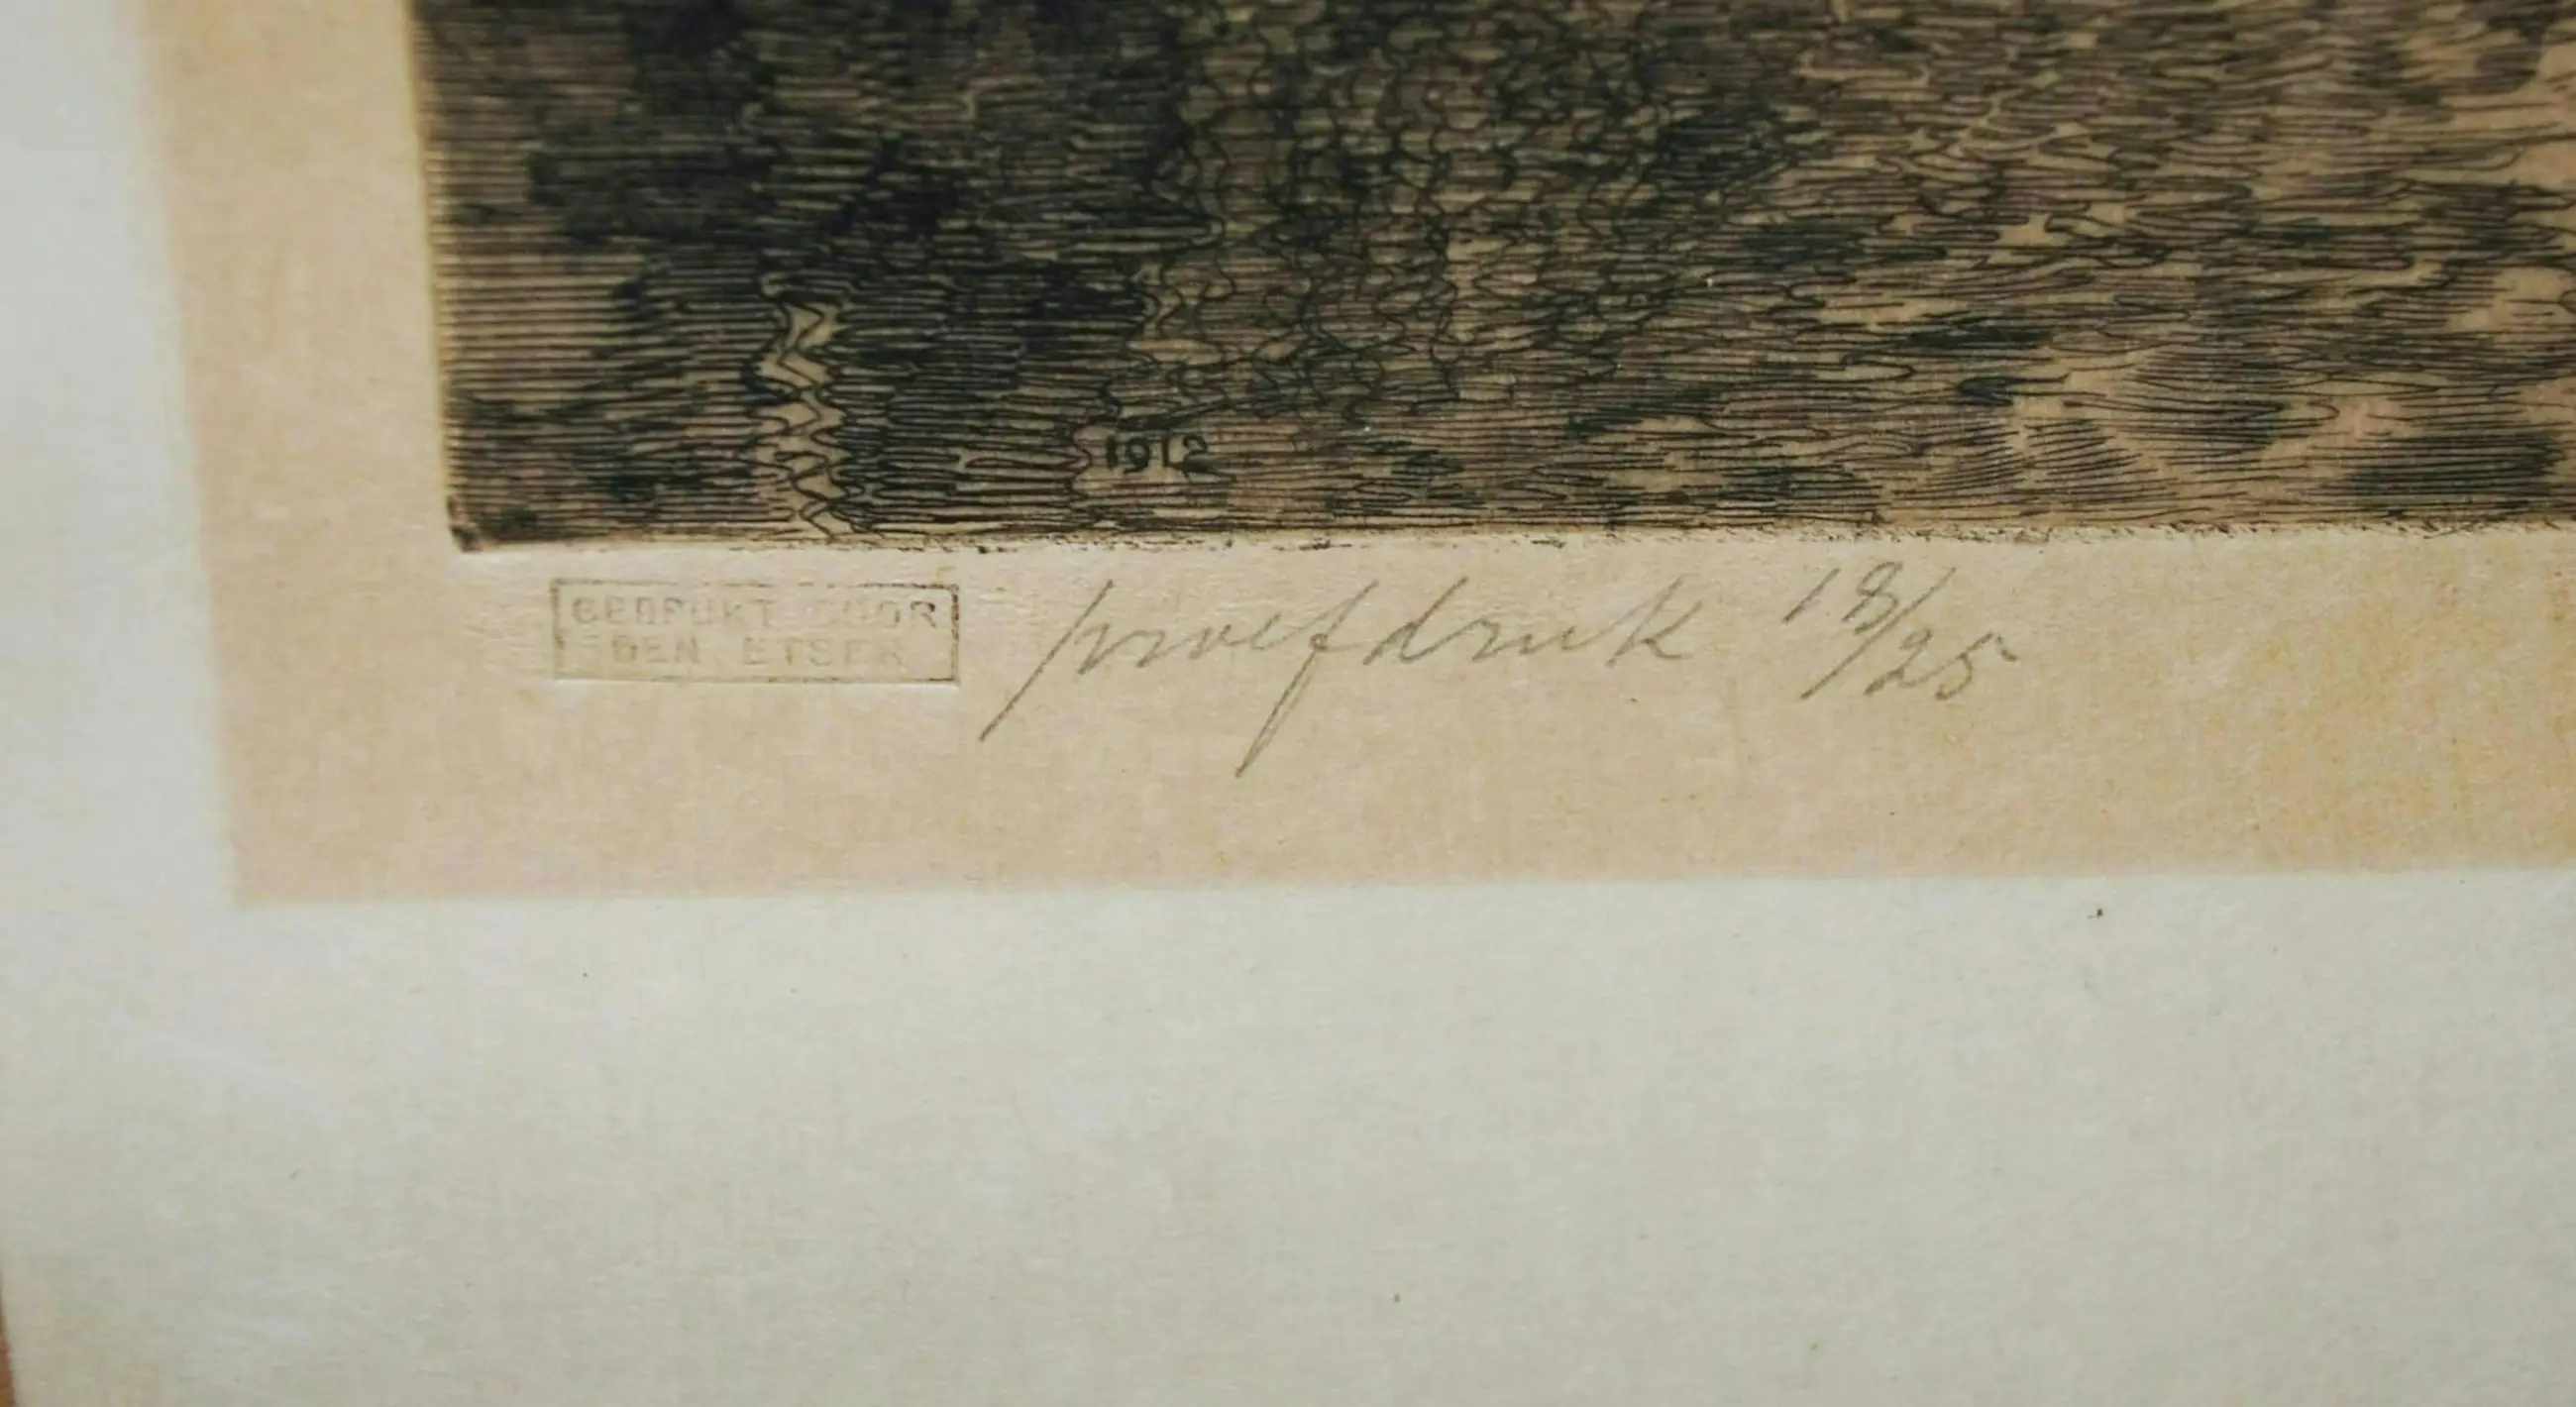 1912
GEDRUKT DOOR
DEN ETSER
proefdruk 18/25